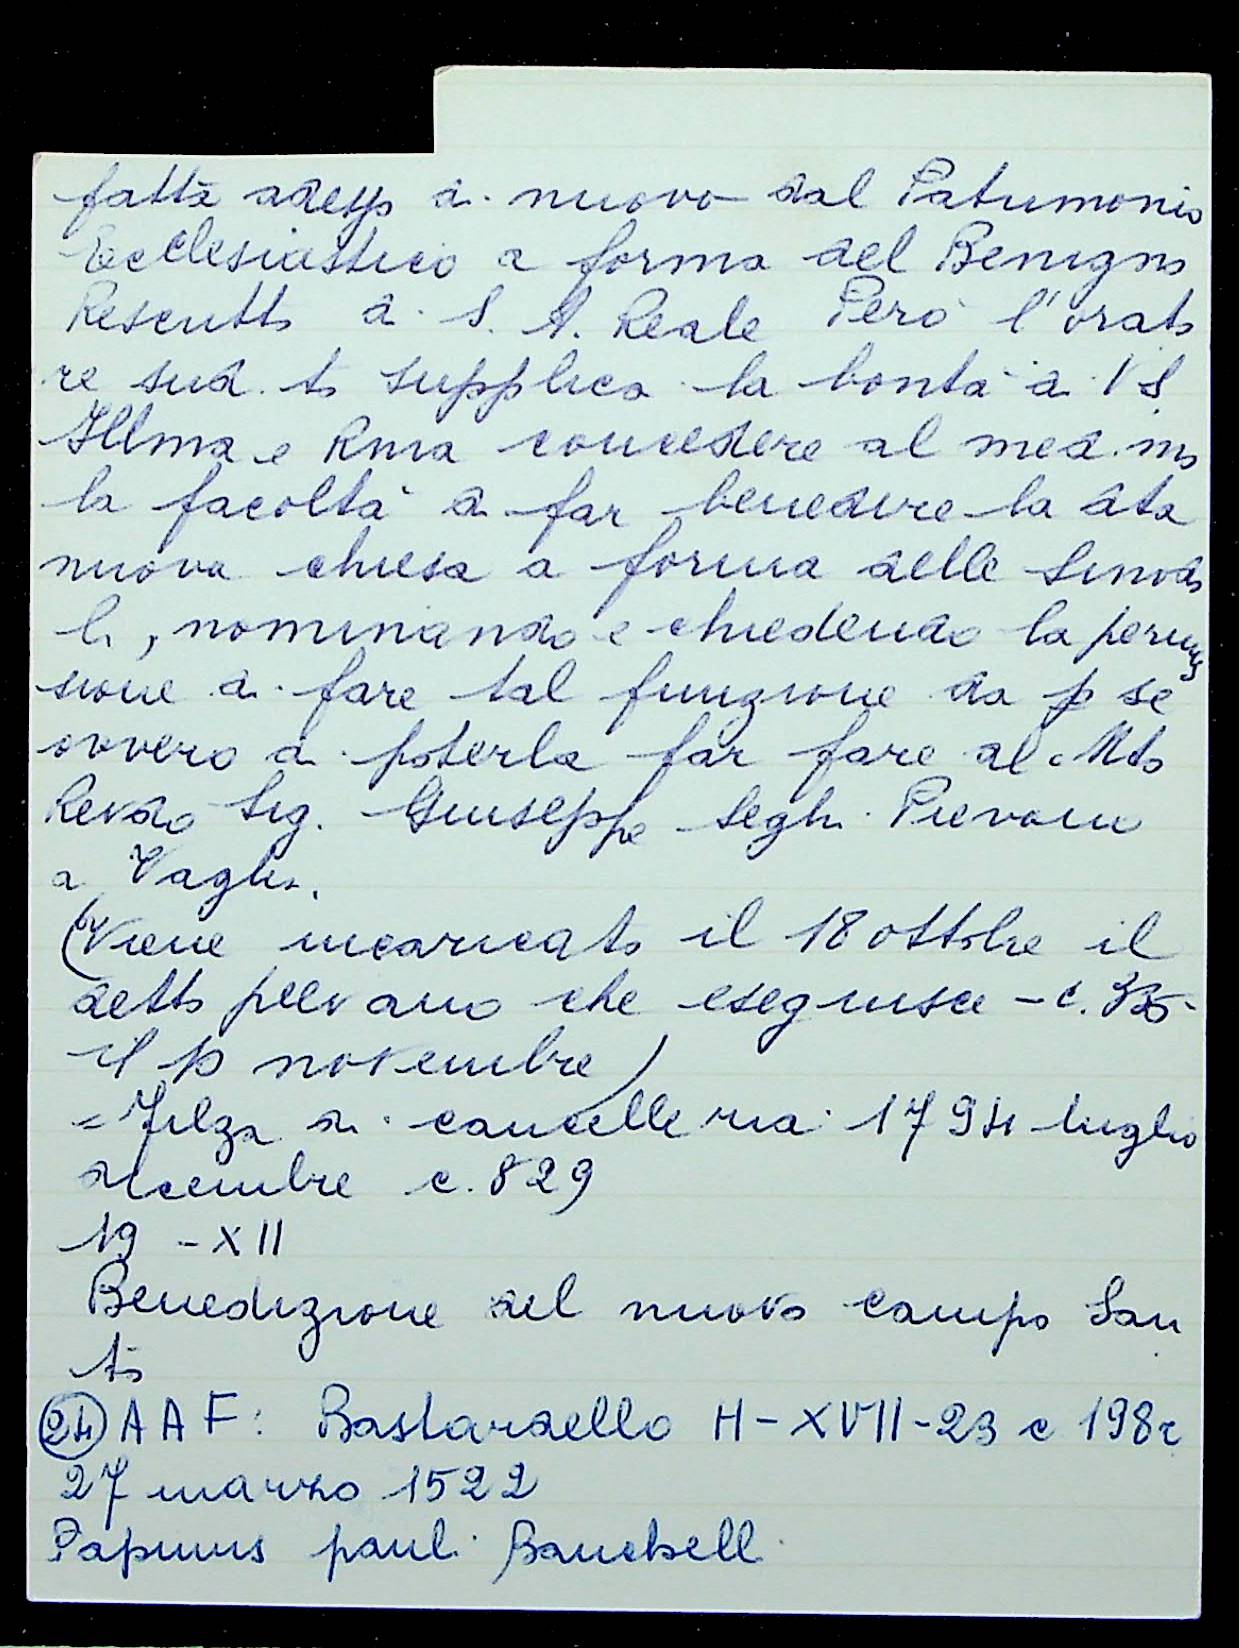 fatta adesso di nuovo dal Patrimonio
Ecclesiastico a forma del Benigno
Rescritto di S. A. Reale Però l'orato
re sud.to supplica la bontà di VS
Illma e Rma concedere al med.mo
la facoltà di far benedire la dta
nuova chiesa a forma delle Sinoda
li, nominando e chiedendo la permis
sione di fare tal funzione da p se
ovvero di poterla far fare al Mto
Revdo Sig. Giuseppe Seghi Pievano
a Vaglia.
(Viene incaricato il 18 ottobre il
detto pievano che eseguisce - c.
il novembre)
= Filza di cancelleria 1794 luglio
dicembre c. 829
19 - XII
Benedizione del nuovo campo San
to
24 AAF: Bastardello H-XVII-23 c 198r
27 marzo 1522
Papinus pauli